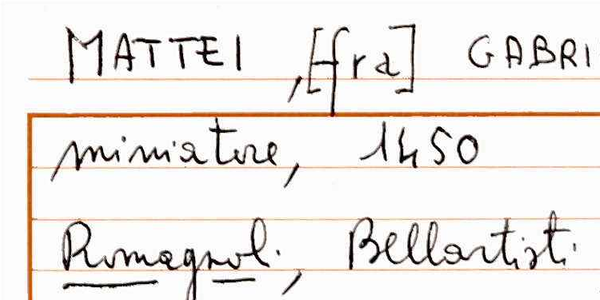 MATTEI, [fra] GABRI
miniatore, 1450
Romagnoli, Bellartisti